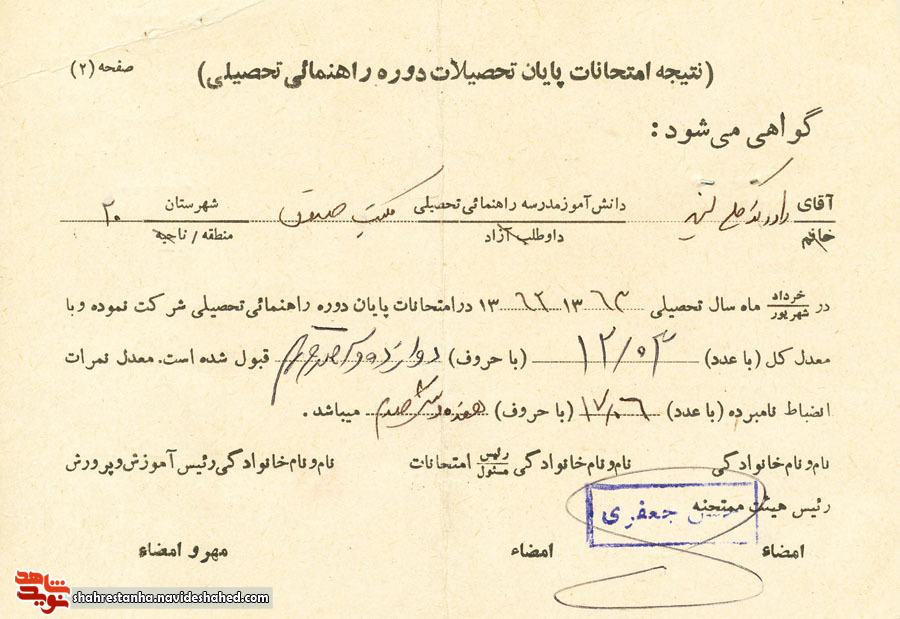 (نتیجه امتحانات پایان تحصیلات دوره راهنمائی تحصیلی) صفحه (۲)
گواهی می‌شود:
آقای دانش‌آموز مدرسه راهنمائی تحصیلی شهرستان ۲۰
خانم داوطلب آزاد منطقه / ناحیه
در خرداد شهریور ماه سال تحصیلی ۱۳۶۳ ۱۳۶۲ در امتحانات پایان دوره راهنمائی تحصیلی شرکت نموده و با
معدل کل (با عدد) ۱۲/۰۴ (با حروف) دوازده و چهارصدم قبول شده است. معدل نمرات
انضباط نامبرده (با عدد) ۱۷/۰۶ (با حروف) هفده و شش صدم میباشد.
نام و نام خانوادگی نام و نام خانوادگی رئیس مسئول امتحانات نام و نام خانوادگی رئیس آموزش و پرورش
رئیس هیئت ممتحنه جعفری
امضاء امضاء مهر و امضاء
شاهد نوید shahrestanha.navideshahed.com